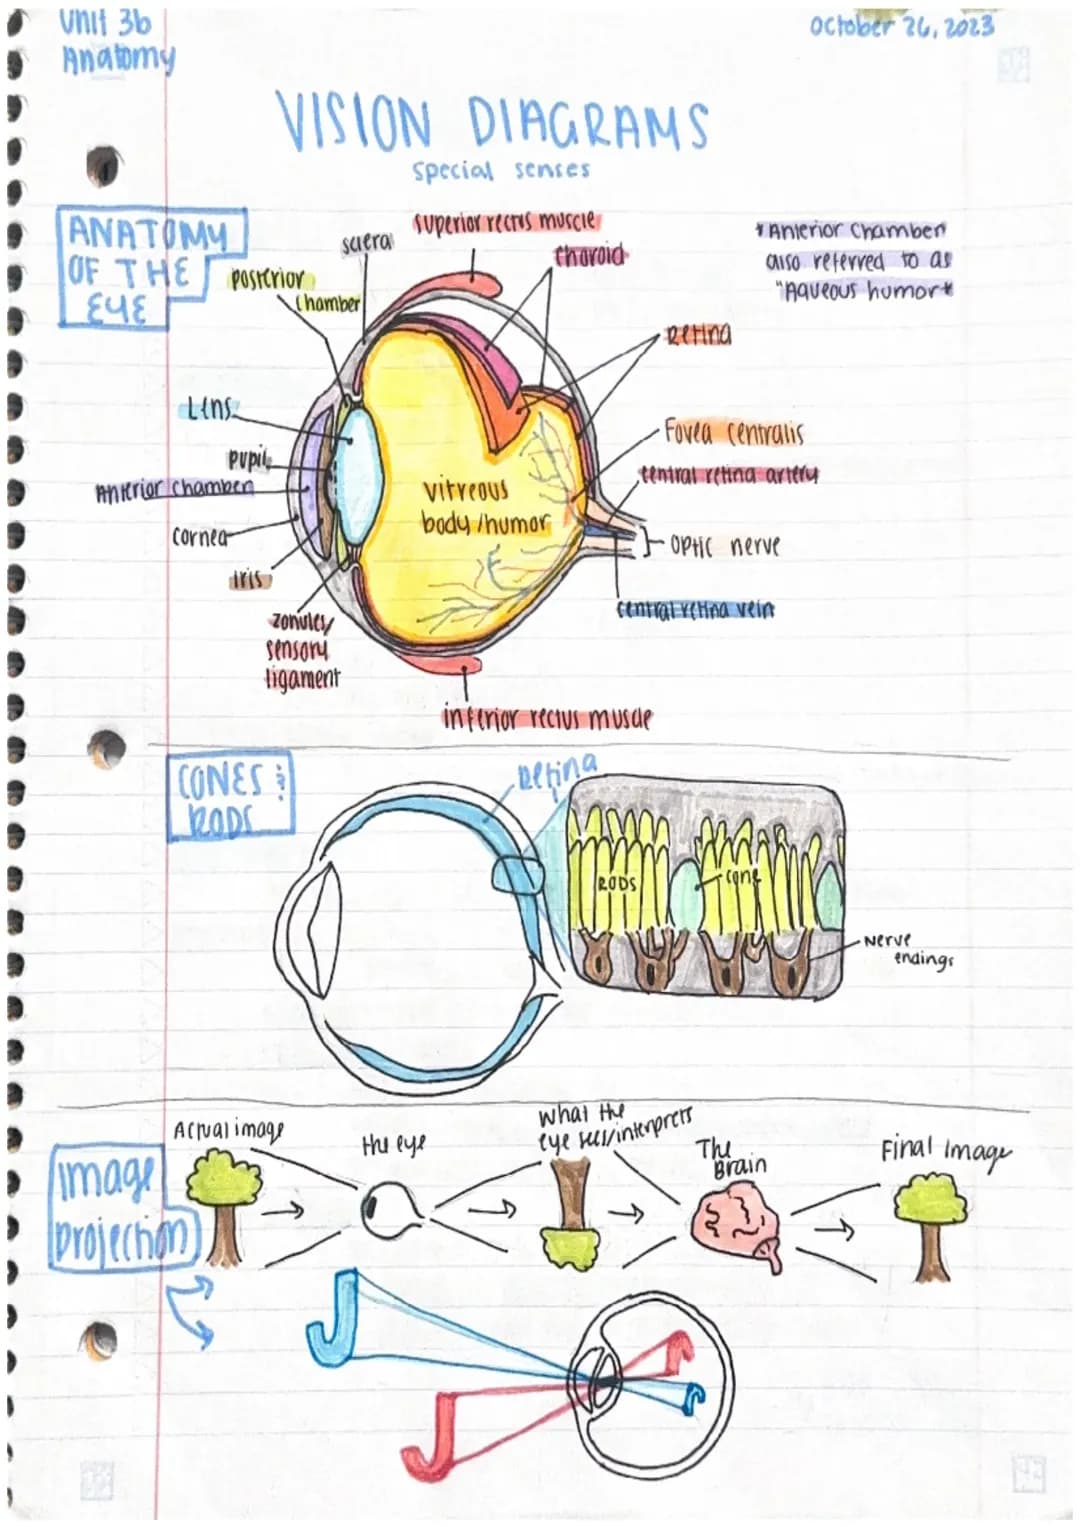 Unit 3b
Anatomy
October 26, 2023
VISION DIAGRAMS
Special senses
ANATOMY
OF THE
EYE
Superior rectus muscle
sclera
choroid
Posterior
chamber
*Anterior Chamber
also referred to as
"Aqueous humor*
Retina
Lens
Fovea centralis
pupil
central retina artery
Anterior chamber
vitreous
body/humor
cornea
optic nerve
iris
central retina vein
zonules/
sensory
ligament
inferior rectus muscle
CONES &
RODS
Retina
RODS
cone
Nerve
endings
Image
projection
Actual image
the eye
What the
eye sees/interprets
The
Brain
Final Image
J
J
J
J